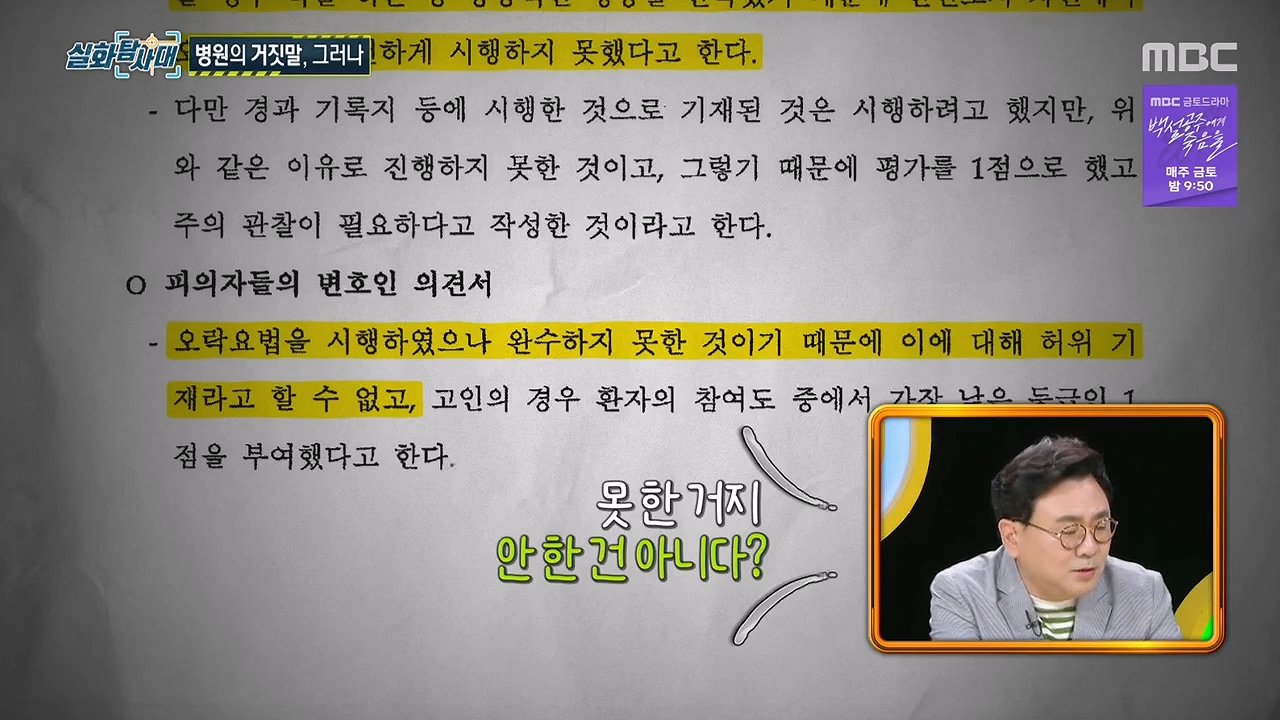 실화탐사대
병원의 거짓말, 그러나
MBC
하게 시행하지 못했다고 한다.
- 다만 경과 기록지 등에 시행한 것으로 기재된 것은 시행하려고 했지만, 위
와 같은 이유로 진행하지 못한 것이고, 그렇기 때문에 평가를 1점으로 했고
주의 관찰이 필요하다고 작성한 것이라고 한다.
MBC 금토드라마
백설공주에게
죽음을
매주 금토
밤 9:50
O 피의자들의 변호인 의견서
- 오락요법을 시행하였으나 완수하지 못한 것이기 때문에 이에 대해 허위 기
재라고 할 수 없고, 고인의 경우 환자의 참여도 중에서
점을 부여했다고 한다.
못한 거지
안 한 건 아니다?